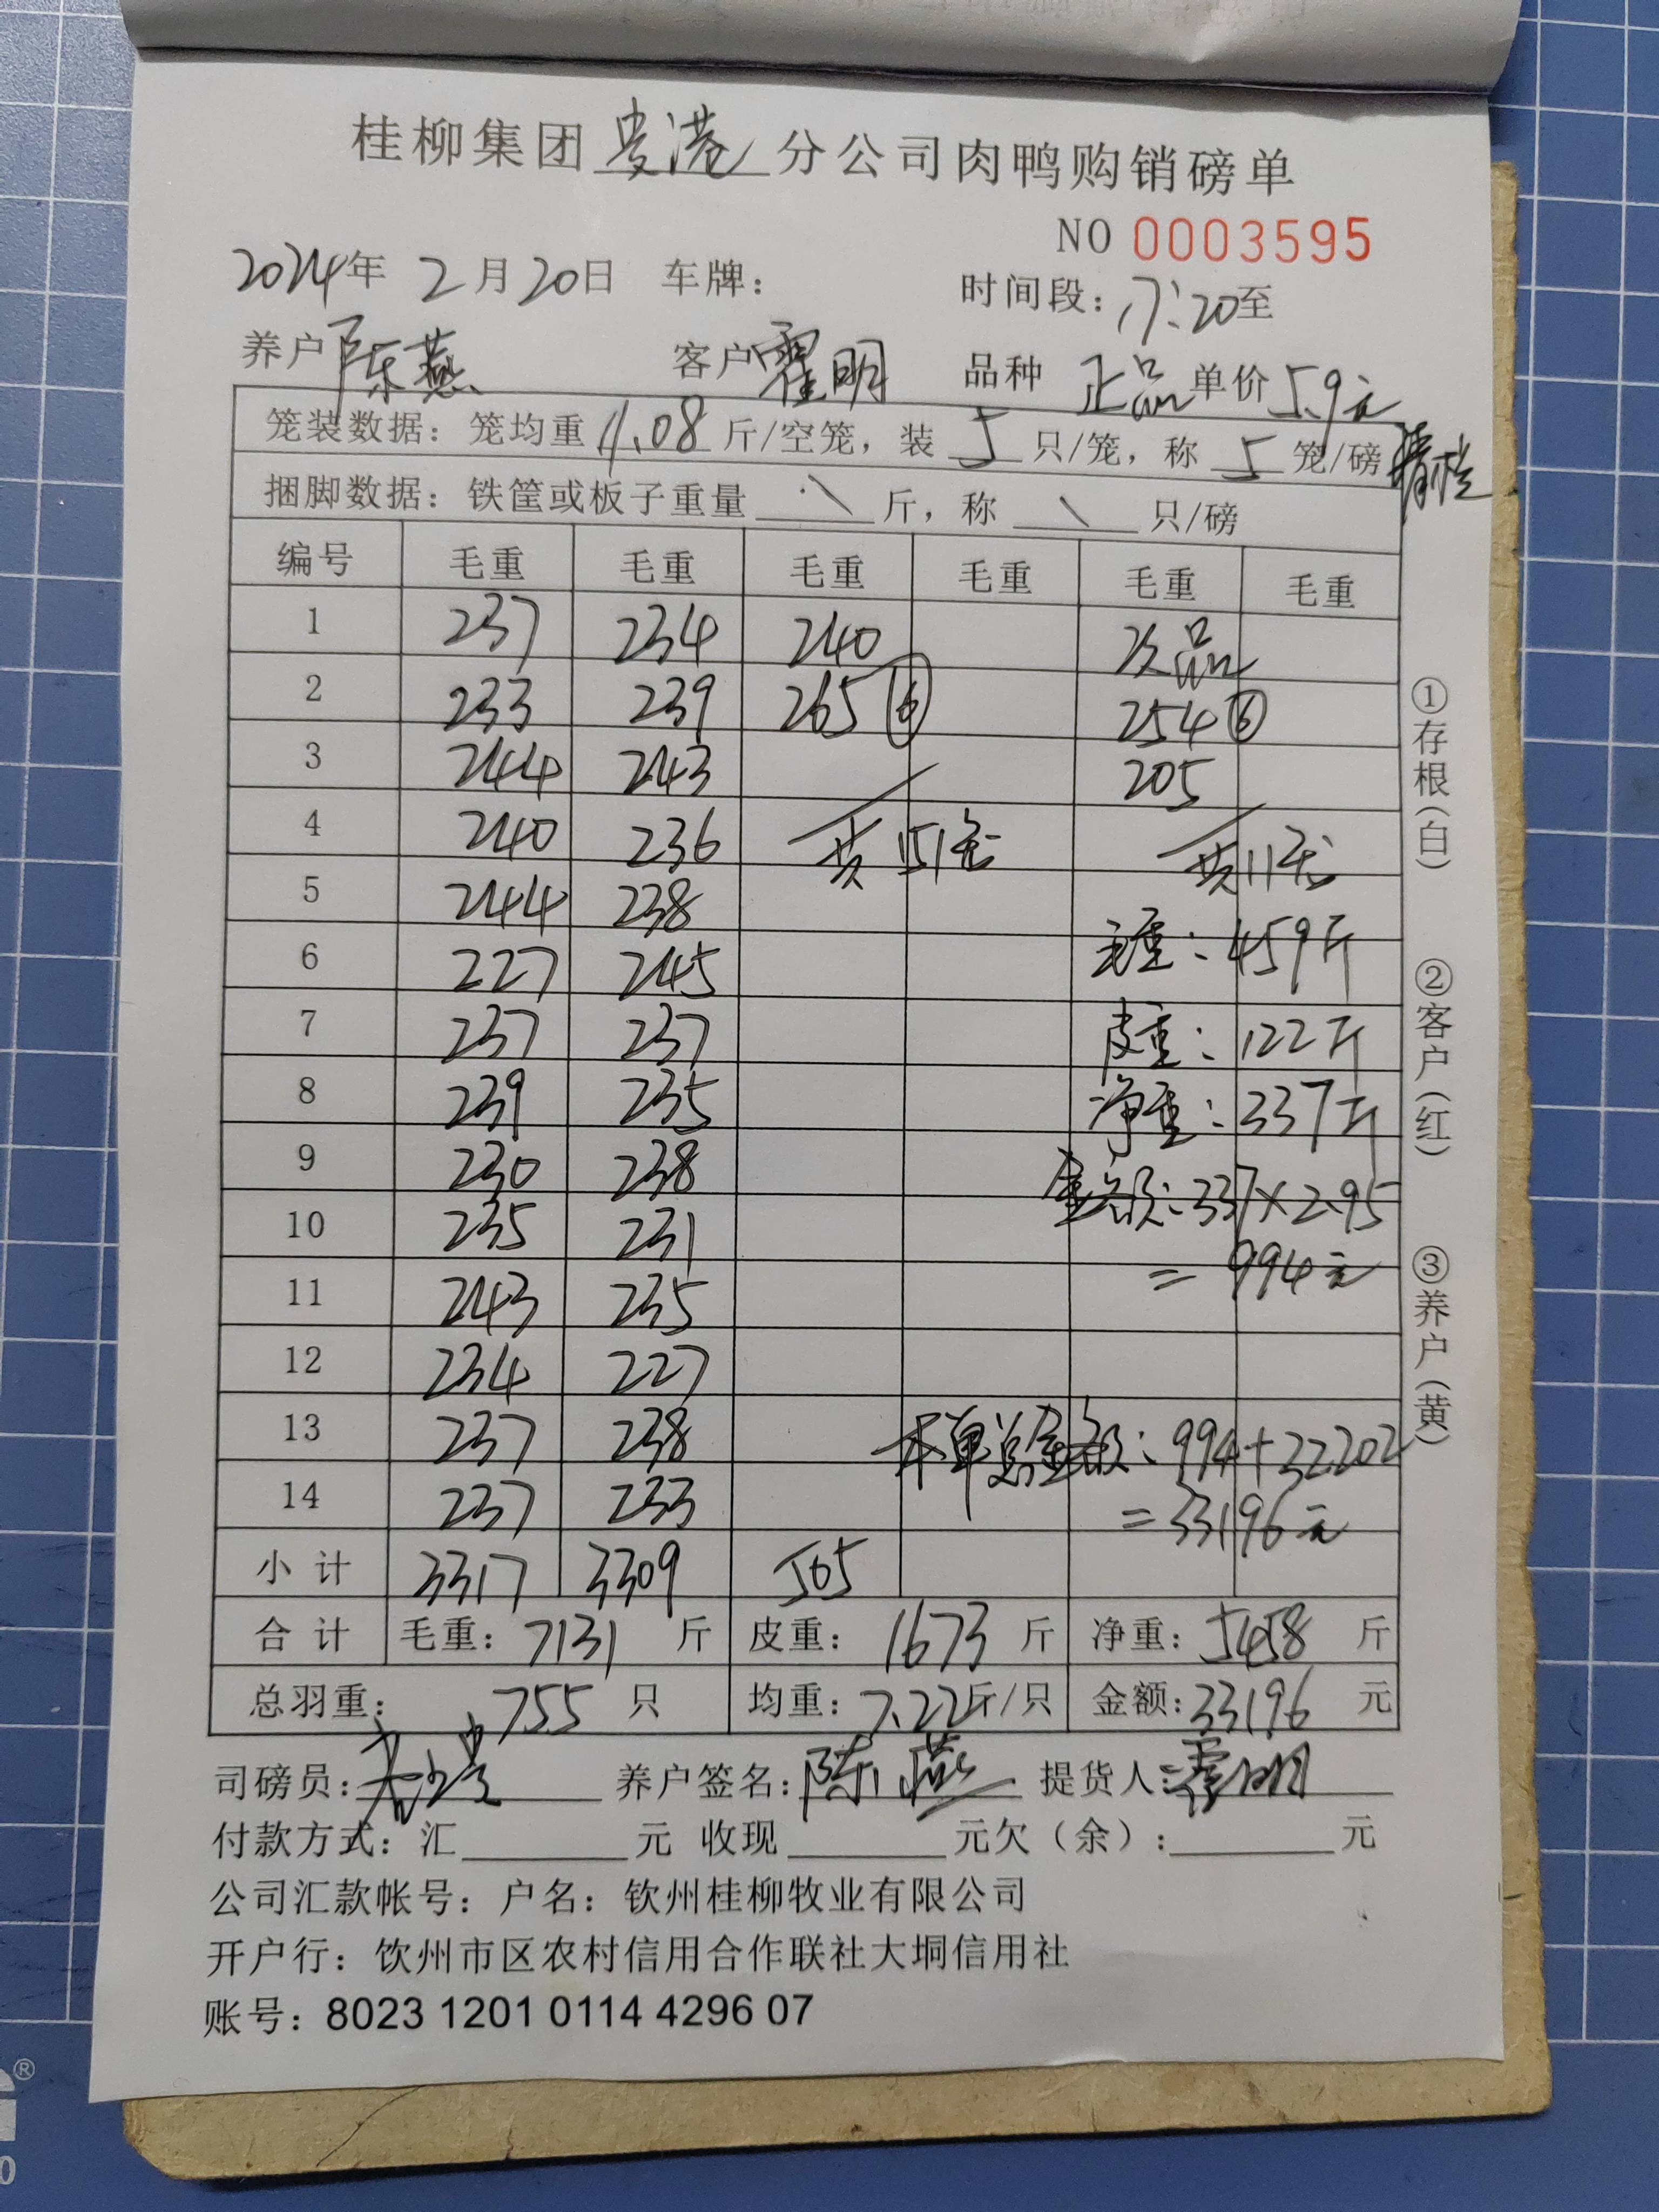 桂柳集团贵港分公司肉鸭购销磅单
NO 0003595
2024年 2月20日 车牌： 时间段：17:20至
养户陈燕 客户霍明 品种 正品 单价5.9元
笼装数据：笼均重11.08斤/空笼，装5只/笼，称5笼/磅
捆脚数据：铁筐或板子重量\斤，称\只/磅
编号 毛重 毛重 毛重 毛重 毛重 毛重
1 237 234 240 次品
2 233 239 265⑥ 254⑥
3 244 243 205
4 240 236 共151笼 共11笼
5 244 238
6 227 245 毛重：459斤
7 237 237 皮重：122斤
8 239 235 净重：337斤
9 230 238 金额：337×2.95
10 235 231 =994元
11 243 235
12 234 227
13 237 238 本单总金额：994+32202
14 237 233 =33196元
小计 3317 3309 505
合计 毛重：7131斤 皮重：1673斤 净重：5458斤
总羽重：755只 均重：7.22斤/只 金额：33196元
司磅员： 养户签名：陈燕 提货人：霍明
付款方式：汇 元 收现 元欠（余）： 元
公司汇款帐号：户名：钦州桂柳牧业有限公司
开户行：钦州市区农村信用合作联社大垌信用社
账号：8023 1201 0114 4296 07
①存根（白） ②客户（红） ③养户（黄）